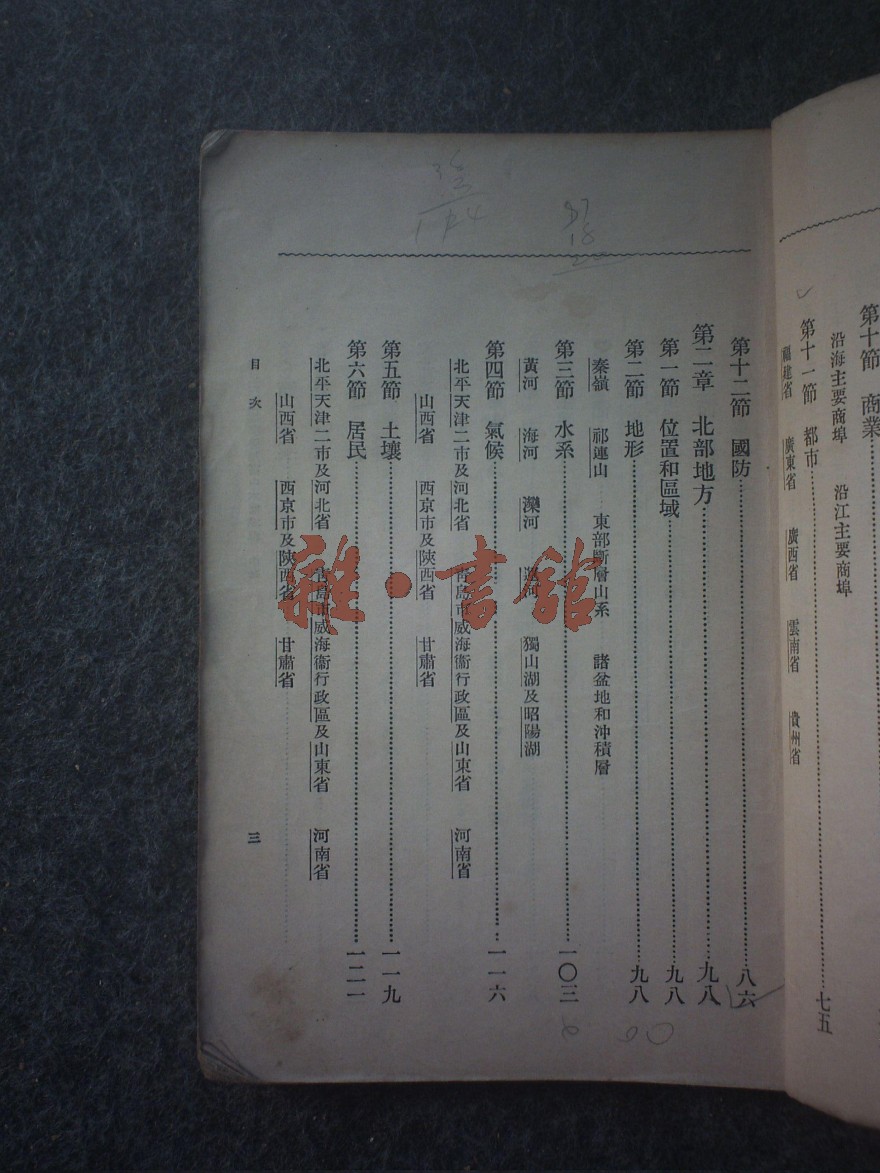 第十節 商業
沿海主要商埠 沿江主要商埠
第十一節 都市……七五
福建省 廣東省 廣西省 雲南省 貴州省
第十二節 國防……八六
第二章 北部地方……九八
第一節 位置和區域……九八
第二節 地形……九八
秦嶺 祁連山 東部斷層山系 諸盆地和沖積層
第三節 水系……一〇三
黃河 海河 灤河 運河 獨山湖及昭陽湖
第四節 氣候……一一六
北平天津二市及河北省 青島市威海衞行政區及山東省 河南省
山西省 西京市及陝西省 甘肅省
第五節 土壤……一一九
第六節 居民……一二一
北平天津二市及河北省 青島市威海衞行政區及山東省 河南省
山西省 西京市及陝西省 甘肅省
目次
三
37
18
雜·書館